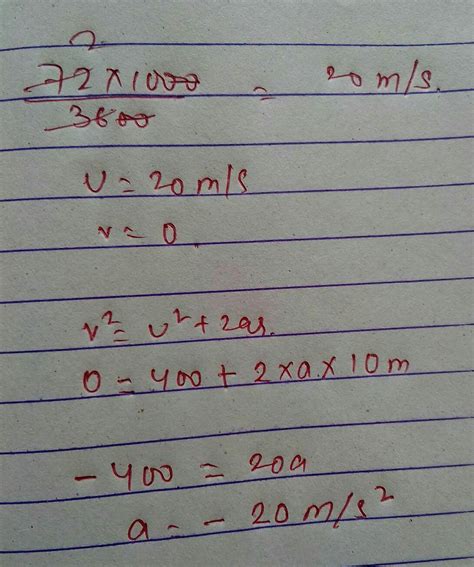 2
72 × 1000 = 20 m/s.
3600
u = 20 m/s
v = 0.
v² = u² + 2as.
0 = 400 + 2 × a × 10 m
- 400 = 20a
a = - 20 m/s²